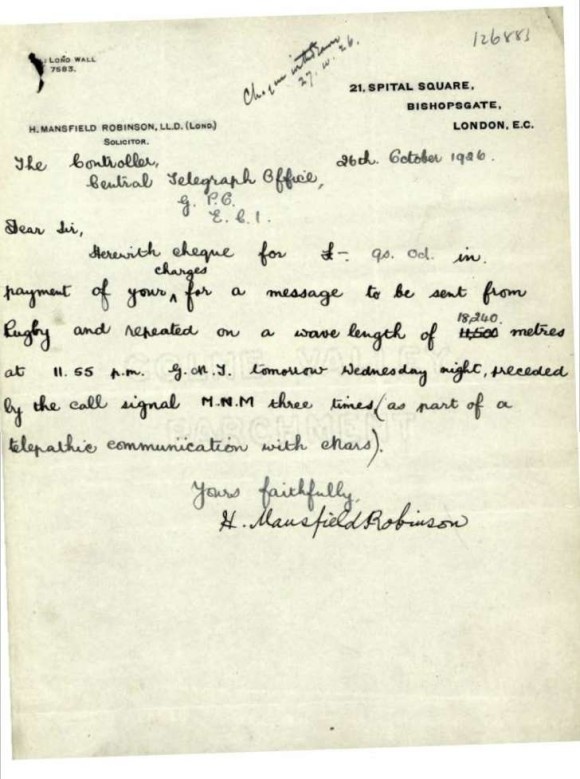 126883
Cheque withdrawn
27.10.26.
LONDON WALL
7583.
21, SPITAL SQUARE,
BISHOPSGATE,
LONDON, E.C.
H. MANSFIELD ROBINSON, LL.D. (LOND.)
SOLICITOR.
26th October 1926.
The Controller,
Central Telegraph Office,
G. P. O.
E. C. 1.
Dear Sir,
Herewith cheque for £-. 9s. 0d. in
payment of your ^ charges for a message to be sent from
Rugby and repeated on a wave length of 11,500 18,240. metres
at 11.55 p.m. G.M.T. tomorrow Wednesday night, preceded
by the call signal M.N.M three times (as part of a
telepathic communication with Mars).
Yours faithfully,
H. Mansfield Robinson
COLNE VALLEY
PARCHMENT